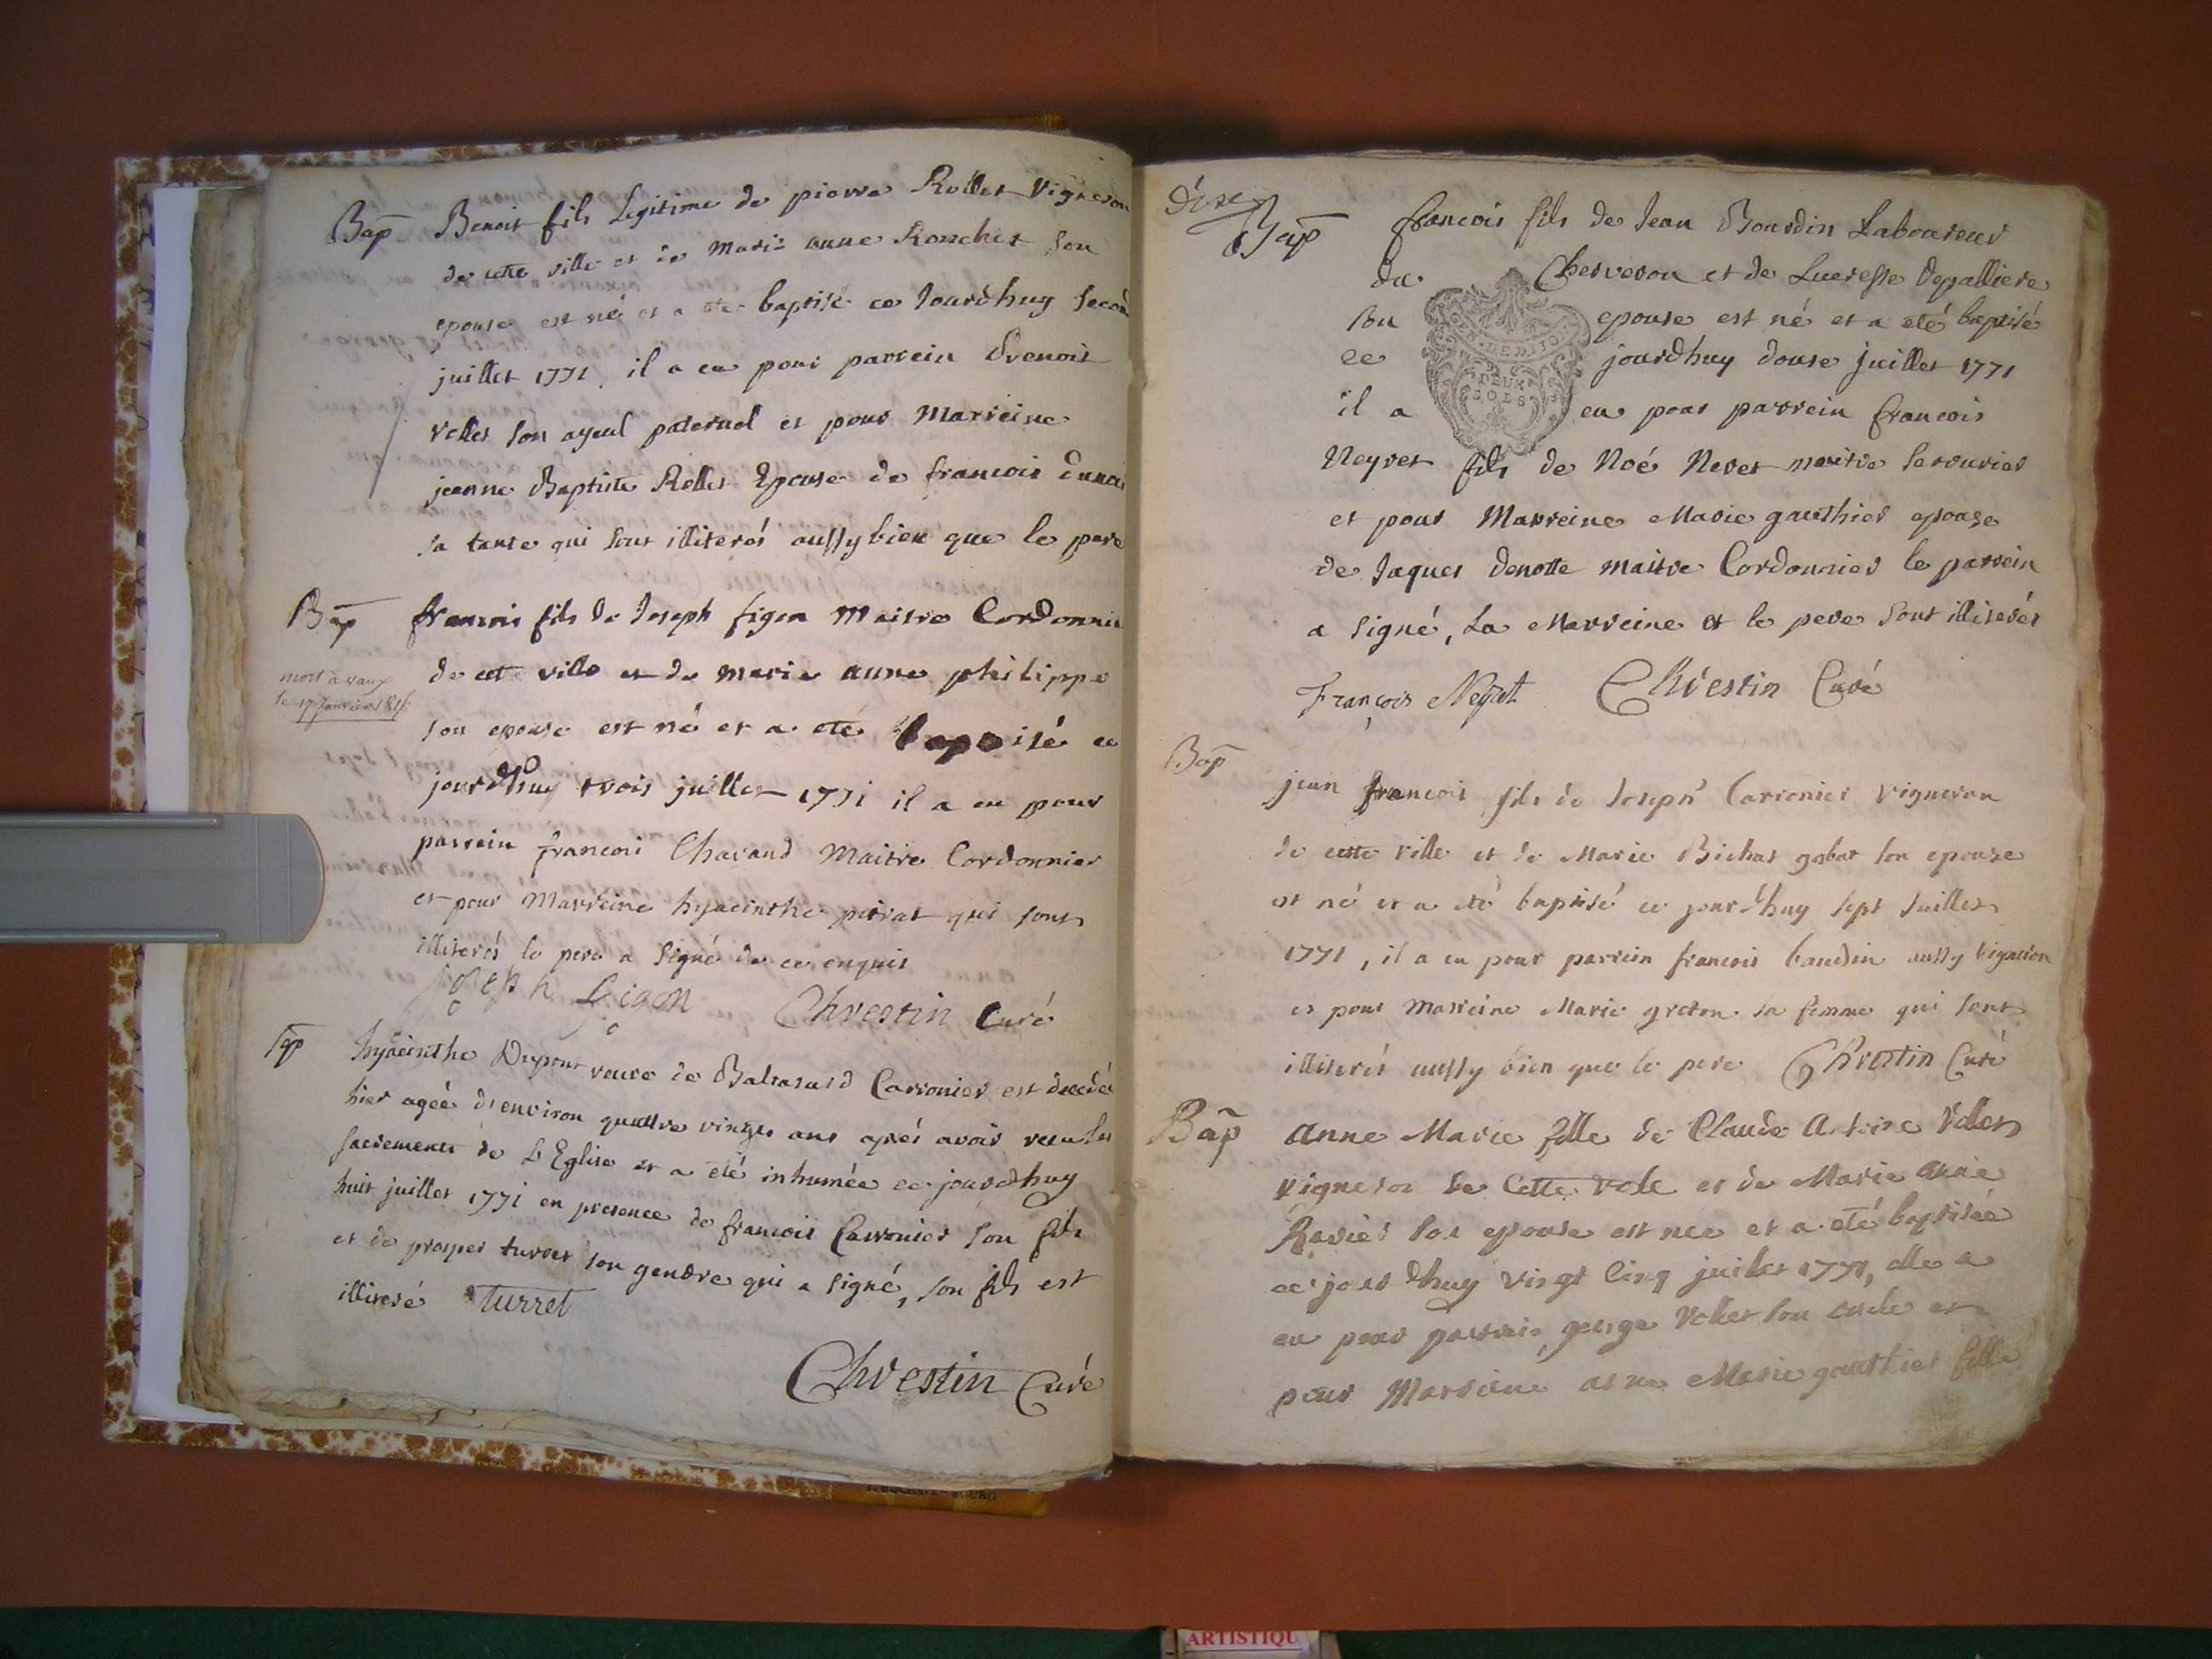 Bap Benoit fils Legitime de pierre Rollet Vigneron
de cette ville et de Marie anne Ronchet son
epouse est né et a ete baptisé ce Jourdhuy second
juillet 1771, il a eu pour parrein Benoit
rollet son ayeul paternel et pour Marreine
jeanne Baptiste Rollet Epouse de francois
sa tante qui sont illiterés aussy bien que le pere
Bap francois fils de Joseph figon Maitre Cordonnier
mort à vaux
le 17 Janvier
de cette ville et de marie anne philippe
son epouse est né et a été baptisé ce
jourdhuy trois juillet 1771 il a eu pour
parrein francois Chavand Maitre Cordonnier
et pour Marreine hyacinthe pitrat qui sont
illiterés le pere a signé de ce enquis
joseph figon Chrestin Curé
Sep hyacinthe Dupont veuve de Baltasard Carronier est decedée
hier agée d'environ quattre vingts ans aprés avoir recu les
sacrements de L'Eglise et a été inhumée ce jourdhuy
huit juillet 1771 en presence de francois Carronier son fils
et de prosper turret son gendre qui a signé, son fils est
illiteré turret
Chrestin Curé
Bap francois fils de Jean Bourdin Laboureur
de Cherveron et de Lucresse Depalliere
son epouse est né et a eté baptisé
ce jourdhuy douse juillet 1771
DEUX
SOLS
il a eu pour parrein francois
Neyret fils de Noé Neret maitre serrurier
et pour Marreine Marie gauthier epouse
de Jaques Denotte maitre Cordonnier le parrein
a signé, La Marreine et le pere sont illiterés
François Neyret Chrestin Curé
Bap
jean francois fils de Joseph Carronier vigneron
de cette ville et de Marie Bichat gobat son epouse
est né et a été baptisé ce jourdhuy sept Juillet
1771, il a eu pour parrein francois baudin aussy vigneron
et pour Marreine Marie greton sa femme qui sont
illiterés aussy bien que le pere Chrestin Curé
Bap Anne Marie fille de Claude Antoine Vollet
vigneron de Cette ville et de Marie anne
Ravier son epouse est nee et a eté baptisée
ce jourdhuy vingt Cinq juillet 1771, elle a
eu pour parrein george Vollet son oncle et
pour Marreine anne Marie gauthier fille
ARTISTIQU